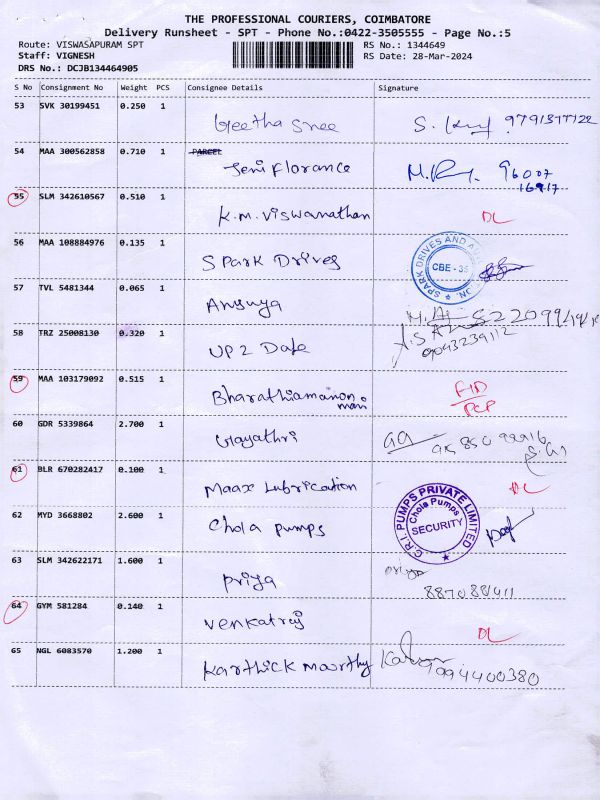 THE PROFESSIONAL COURIERS, COIMBATORE
Delivery Runsheet - SPT - Phone No.:0422-3505555 - Page No.:5
Route: VISWASAPURAM SPT
RS No.: 1344649
Staff: VIGNESH
RS Date: 28-Mar-2024
DRS No.: DCJB134464905
S No Consignment No Weight PCS Consignee Details Signature
53 SVK 30199451 0.250 1
Geetha Sree S.
54 MAA 300562858 0.710 1 PARCEL
Jeni Florance 96007
16917
55 SLM 342610567 0.510 1
K.M. Viswanathan DL
56 MAA 108884976 0.135 1
Spark Drives SPARK DRIVES AND CBE - 35
57 TVL 5481344 0.065 1
Anusuya
58 TRZ 25008130 0.320 1
UP 2 Date 9093239112
59 MAA 103179092 0.515 1
Bharathiamanon
mani
60 GDR 5339864 2.700 1
Gayathri
61 BLR 670282417 0.100 1
Maax Lubrication DL
62 MYD 3668802 2.600 1
Chola pumps C.R.I. PUMPS PRIVATE LIMITED Chola Pumps SECURITY
63 SLM 342622171 1.600 1
Priya Priya
64 GYM 581284 0.140 1
Venkatraj DL
65 NGL 6083570 1.200 1
Karthick Moorthy 9994400380